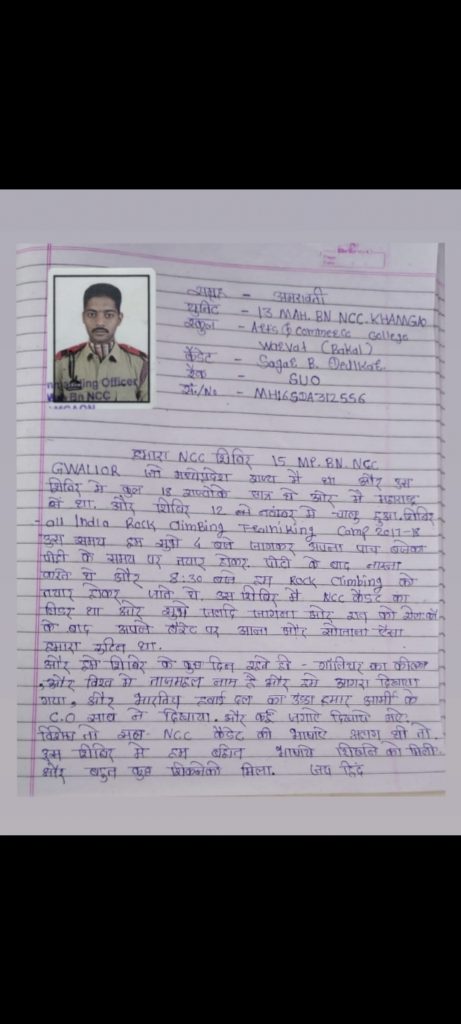 समूह - अमरावती
युनिट - 13 MAH. BN NCC. KHAMGAO
स्कुल - Arts & Commerce College
Warvat (Bakal)
कॅडेट - Sagar B.
रँक - SUO
सं./No - MH16SDA312556
ing Officer
Bn NCC
हमारा NCC शिबिर 15 MP. BN. NCC
GWALIOR जो मध्यप्रदेश राज्य में था और इस
शिबिर मे कुल 18 राज्योके छात्र थे और मे महाराष्ट्र
से था. और शिबिर 12 नवंबर मे चालु हुआ. शिबिर
- all India Rock Climbing Camp 2017-18
उस समय हम सुबह 4 बजे जागकर अपना पाच बजेका
पीटी के समय पर तयार होकर. पीटी के बाद नास्ता
करते थे और 8:30 बजे हम Rock Climbing को
तयार होकर जाते थे. उस शिबिर में NCC कॅडेट का
लिडर था और मुझे जल्दि जागना और रात को
के बाद अपने पर आना और ऐसा
हमारा रुटिन था.
और हमे शिबिर के कुछ दिन रहते ही - ग्वालियर का
और विश्व मे ताजमहल नाम है और उसे आगरा दिखाया
गया, और भारतिय हवाई दल का हमारे आर्मी के
C.O साब ने दिखाया. और कई जगाए दिखाये गये.
विशेष तो सब NCC कॅडेट की भाषाए अलग थी तो.
उस शिबिर मे हम भाषाये को मिली.
और बहुत कुछ मिला. जय हिंद